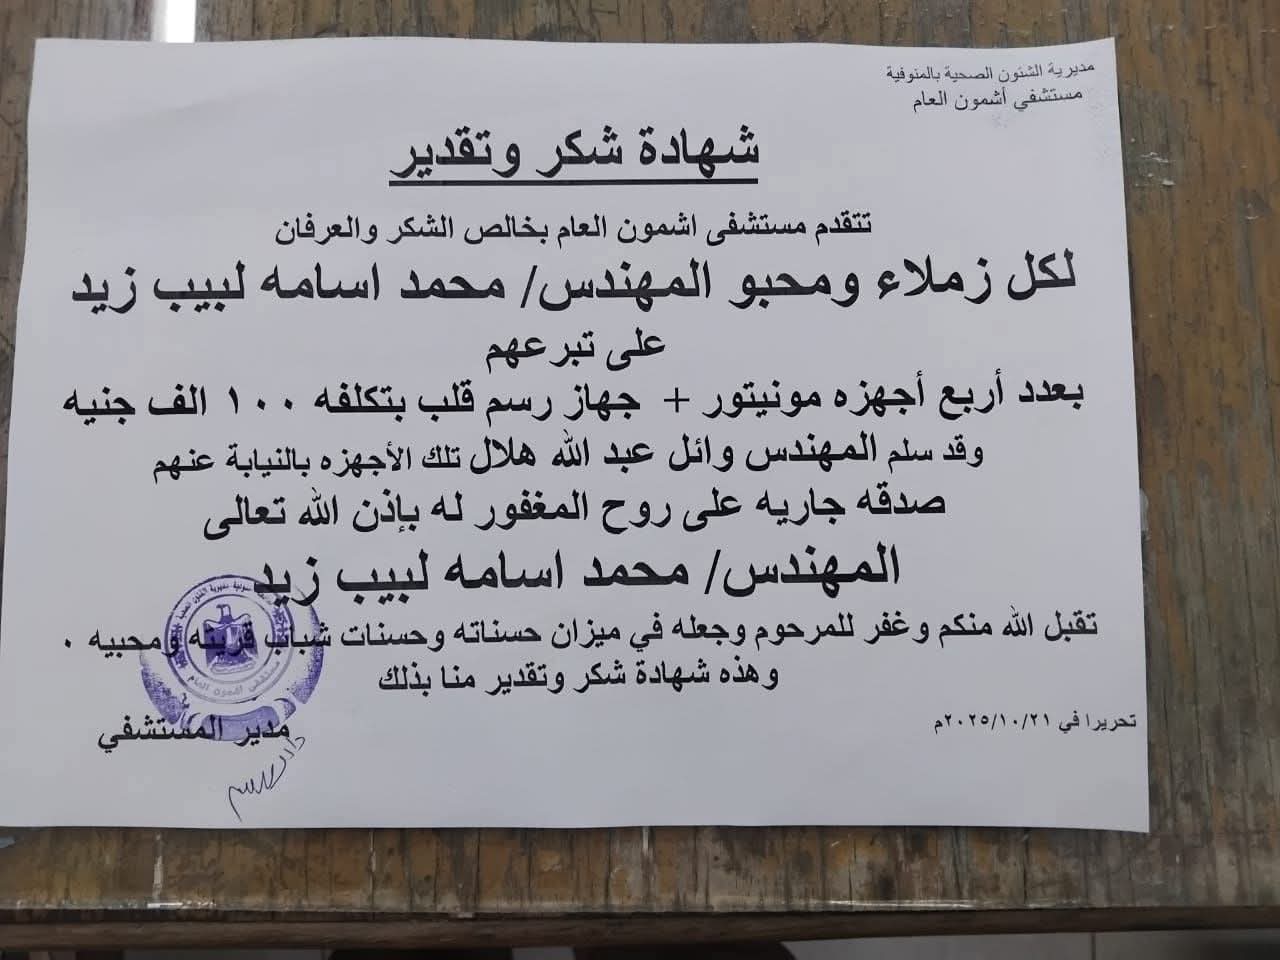 مديرية الشئون الصحية بالمنوفية
مستشفي أشمون العام
شهادة شكر وتقدير
تتقدم مستشفى اشمون العام بخالص الشكر والعرفان
لكل زملاء ومحبو المهندس/ محمد اسامه لبيب زيد
على تبرعهم
بعدد أربع أجهزه مونيتور + جهاز رسم قلب بتكلفه ١٠٠ الف جنيه
وقد سلم المهندس وائل عبد الله هلال تلك الأجهزه بالنيابة عنهم
صدقه جاريه على روح المغفور له بإذن الله تعالى
المهندس/ محمد اسامه لبيب زيد
تقبل الله منكم وغفر للمرحوم وجعله في ميزان حسناته وحسنات شباب قريته ومحبيه ٠
وهذه شهادة شكر وتقدير منا بذلك
تحريرا في ٢٠٢٥/١٠/٢١م
مدير المستشفي
مستشفى اشمون العام